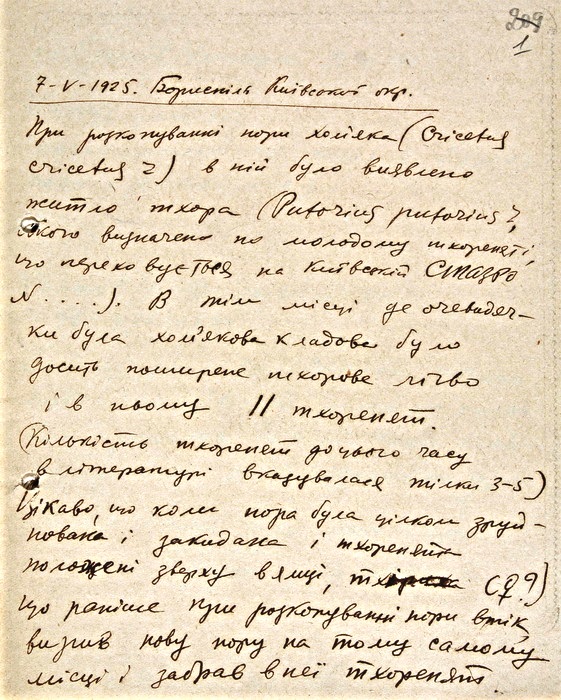 209
1
7-V-1925. Бориспіль Київської окр.
При розкопуванні нори хом'яка (Cricetus
cricetus L) в ній було виявлено
житло тхора (Putorius putorius L,
якого визначено по молодому тхореняті,
що переховується на Київській СТАЗРО
N ....). В тім місці де очевидяч-
ки була хом'якова кладова було
досить поширене тхорове лігво
і в ньому 11 тхоренят.
(Кількість тхоренят до цього часу
в літературі вказувалася тілки 3-5)
Цікаво, що коли нора була цілком зруй-
нована і закидана і тхоренята
положені зверху в ящі, (♀?)
що раніше при розкопуванні нори втік,
вирив нову нору на тому самому
місці і забрав в неї тхоренят.